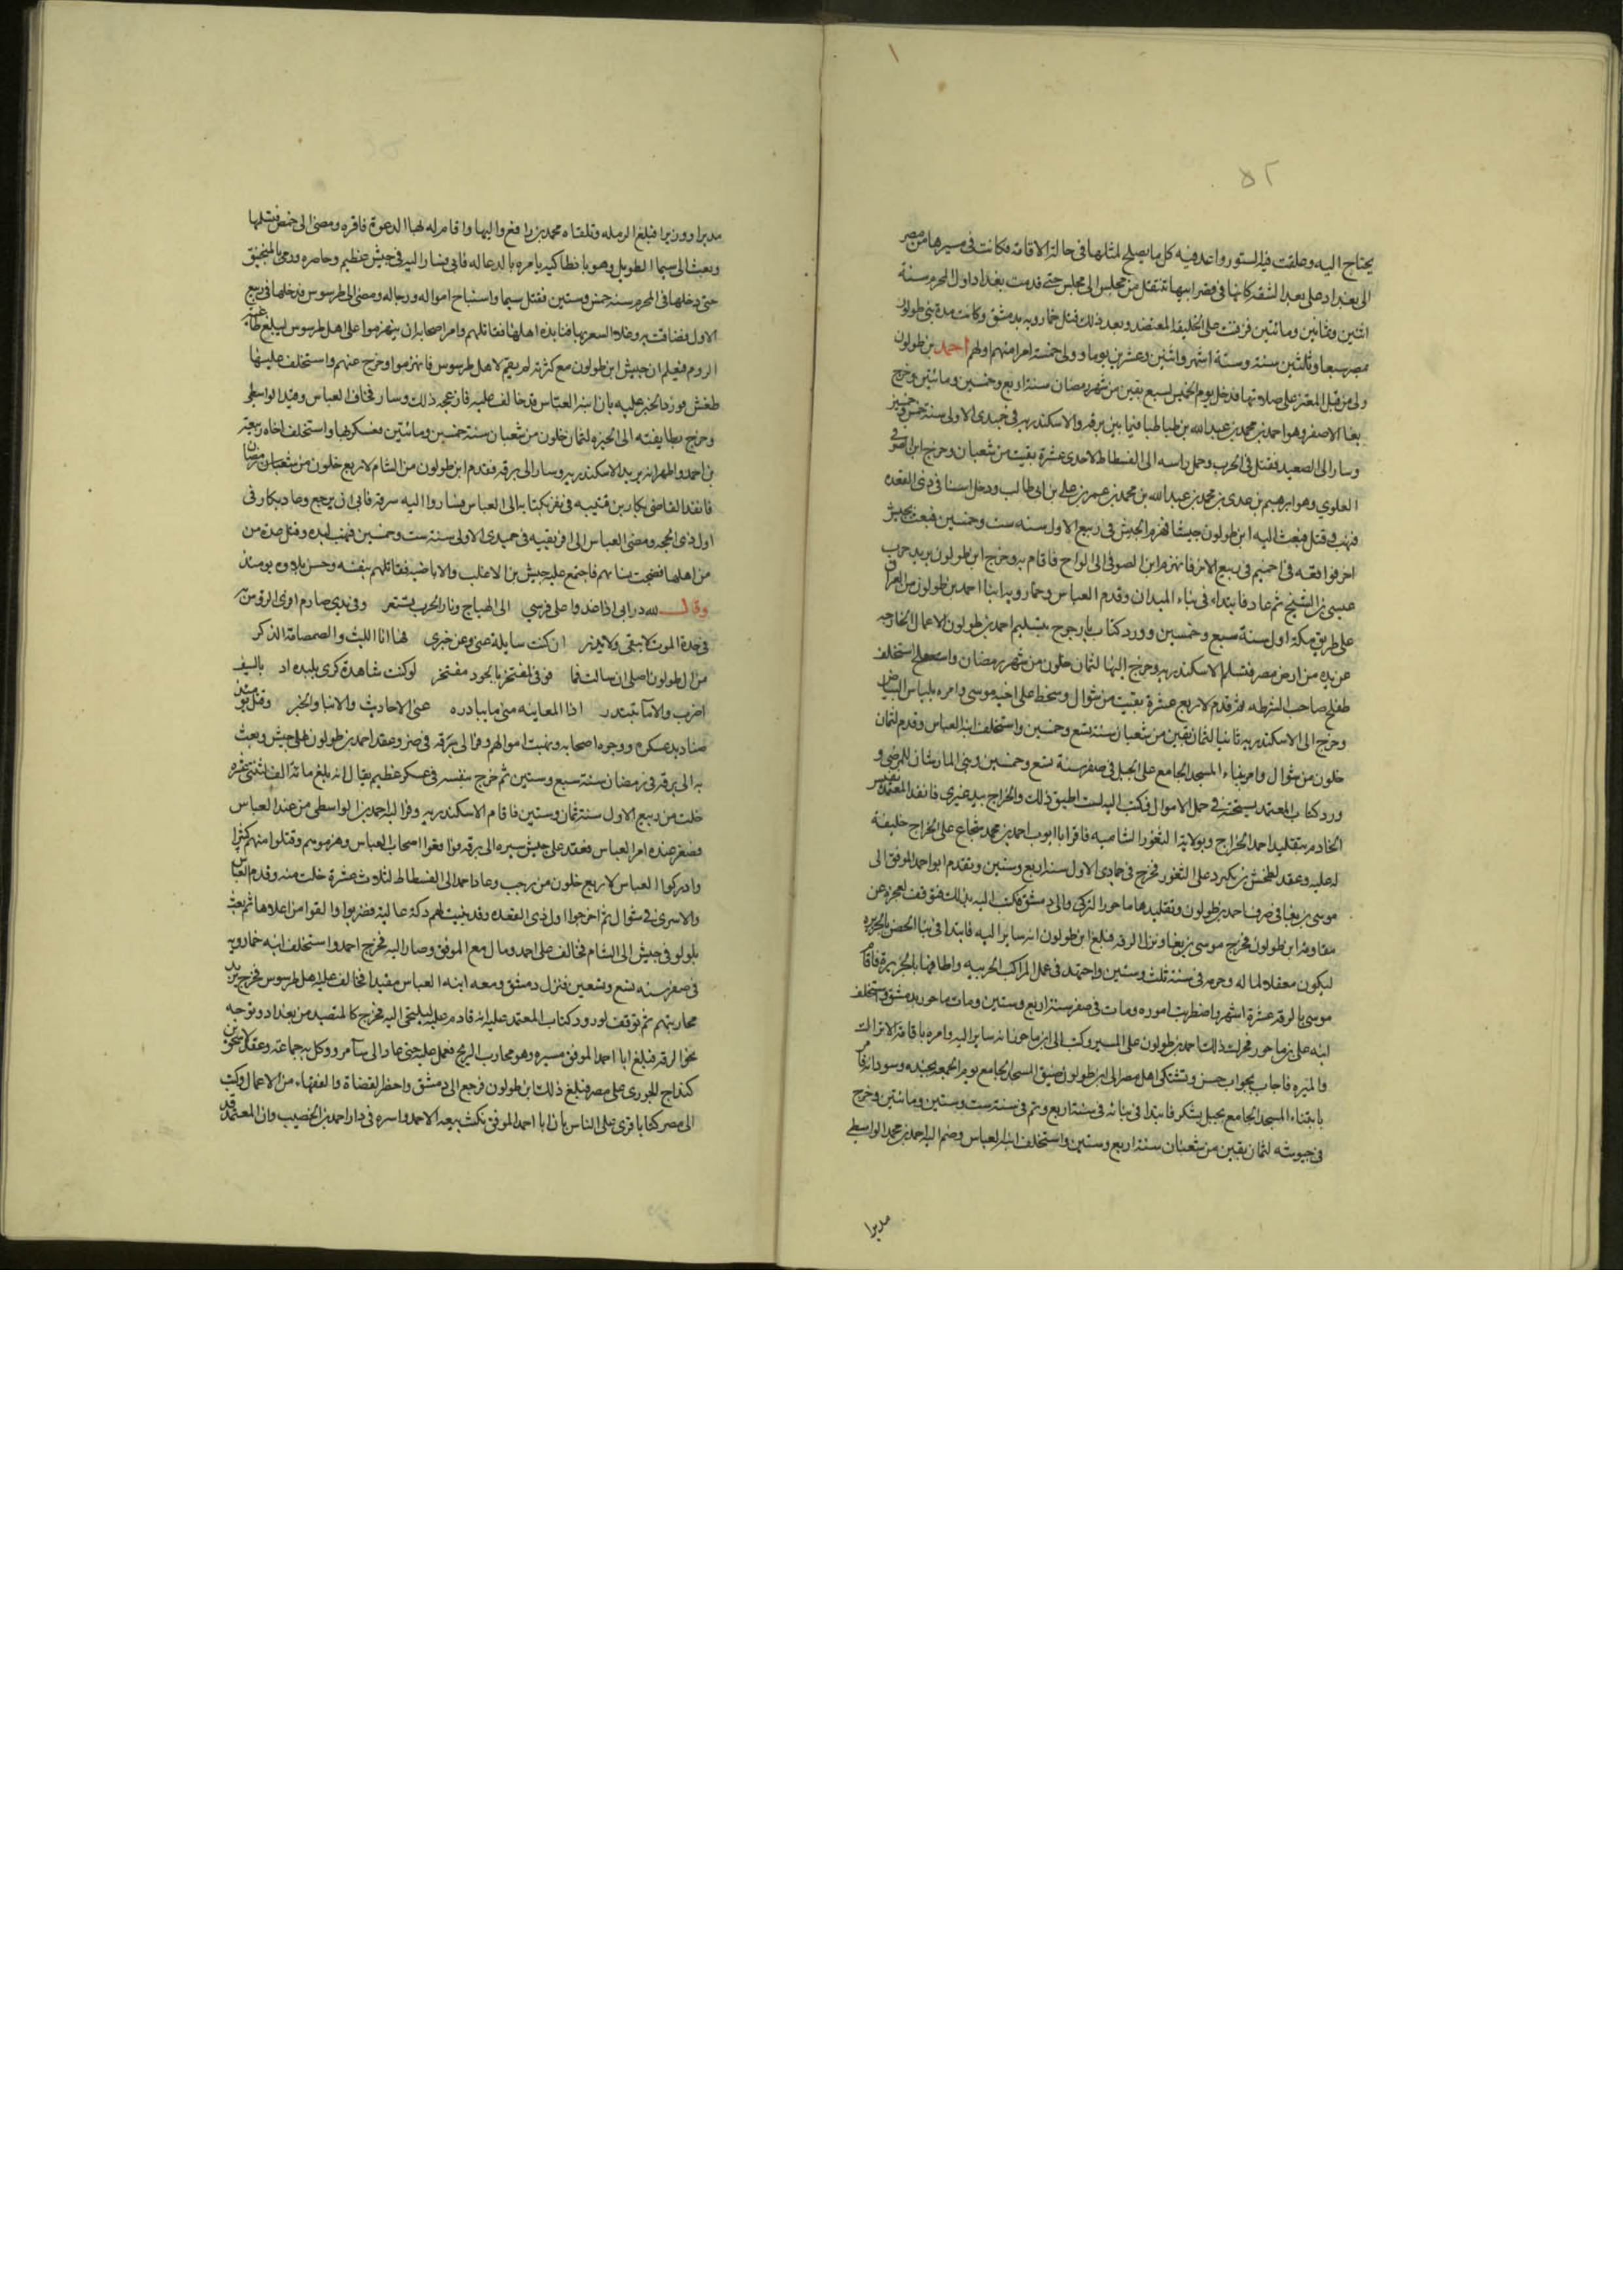 ٥٢
يحتاج اليه وعلقت فيه الستور واعد فيه كل ما يصلح لمثلها فى حالة الاقامه فكانت فى مسيرها من مصر
الى بغداد على بعد الشقه كانها فى قصر ابيها تنتقل من مجلس الى مجلس حتى قدمت بغداد اول المحرم سنة
اثنين وثمانين ومائتين فزفت على الخليفه المعتضد وبعد ذلك قتل خمارويه بدمشق وكانت مدة بنى طولون
بمصر سبعا وثلثين سنة وستة اشهر واثنين وعشرين يوما وولى خمسة امرا منهم اولهم احمد بن طولون
ولى من قبل المعتز على صلاتها فدخل يوم الخميس لسبع بقين من شهر رمضان سنة اربع وخمسين ومائتين وخرج
بغا الاصفر وهو احمد بن محمد بن عبد الله بن طباطبا فيما بين برقه والاسكندريه فى جمدى الاولى سنة خمس وخمسين
وسار الى الصعيد فقتل فى الحرب وحمل راسه الى الفسطاط لاحدى عشرة بقيت من شعبان وخرج ابن الصوفى
العلوي وهو ابرهيم بن محمد بن عبد الله بن محمد بن عمر بن على بن ابى طالب ودخل اسنا فى ذى القعده
فنهب وقتل فبعث اليه ابن طولون جيشا فهزم الجيش فى ربيع الاول سنه ست وخمسين فبعث بجيش
اخر فواقعه فى اخميم فى ربيع الاخر فانهزم ابن الصوفى الى الواح فاقام به وخرج ابن طولون يريد حرب
عيسى بن الشيخ ثم عاد فابتداء فى بناء الميدان وقدم العباس وخمارويه ابنا احمد بن طولون من العراق
على طريق مكة اول سنة سبع وخمسين وورد كتاب يارجوج بتسليم احمد بن طولون الاعمال الخارجه
عن يده من ارض مصر فتسلم الاسكندريه وخرج اليها لثمان خلون من شهر رمضان واستخلف
طغلج صاحب الشرطه ثم قدم لاربع عشرة بقيت من شوال وسخط على اخيه موسى وامره بلباس البياض
وخرج الى الاسكندريه ثانيا لثمان بقين من شعبان سنة تسع وخمسين واستخلف ابنه العباس وقدم لثمان
خلون من شوال وامر ببناء المسجد الجامع على الجبل فى صفر سنة تسع وخمسين وبنى المارستان للمرضى و
ورد كتاب المعتمد يستحثه فى حمل الاموال فكتب اليه لست اطيق ذلك والخراج بيد غيرى فانفذ المعتمد نفيس
الخادم بتقليد احمد الخراج وبولاية الثغور الشاميه فاقر ابا ايوب احمد بن محمد بن شجاع على الخراج خليفة
له عليه وعقد لطخشى بن بلبرد على الثغور فخرج فى جمادى الاول سنة اربع وستين وتقدم ابو احمد الموفق الى
موسى بن بغا فى صرف احمد بن طولون وتقليدها ماجور التركى والى دمشق فكتب اليه بذلك فتوقف لعجزه عن
مقاومة ابن طولون فخرج موسى بن بغا ونزل الرقه فبلغ ابن طولون انه سايرا اليه فابتدا فى بنا الحصن بالجزيره
ليكون معقلا لماله وحرمه فى سنة ثلث وستين واجتهد فى عمل المراكب الحربيه واطافها بالجزيرة فاقام
موسى بالرقه عشرة اشهر واضطربت اموره ومات فى صفر سنة اربع وستين ومات ماجور بدمشق واستخلف
ابنه على بن ماجور فحرك ذلك احمد بن طولون على المسير وكتب الى ابن ماجور انه سايرا اليه وامره باقامة الانزال
والميره فاجاب بجواب حسن وتشتكى اهل مصر الى ابن طولون ضيق المسجد الجامع يوم الجمعه بجنده وسودانه فامر
بابتناء المسجد الجامع بجبل يشكر فابتدا فى بنائه فى سنة اربع وتم فى سنة ست وستين ومائتين وخرج
فى جيوشه لثمان بقين من شعبان سنة اربع وستين واستخلف ابنه العباس وضم اليه احمد بن محمد الواسطى
مدبرا
مدبرا ووزيرا فبلغ الرمله وتلقاه محمد بن رافع واليها واقام له بها الدعوة فاقره ومضى الى حمص فتسلمها
وبعث الى سيما الطويل وهو بانطاكيه يامره بالدعا له فابى فسار اليه فى جيش عظيم وحاصره ورمى بالمنجنيق
حتى دخلها فى المحرم سنة خمس وستين فقتل سيما واستباح امواله ورجاله ومضى الى طرسوس فدخلها فى ربيع
الاول فضاقت به وغلا السعر بها فنابذه اهلها فقاتلهم وامر اصحابه ان ينهزموا على اهل طرسوس ليبلغ طاغية
الروم فيعلم ان جيش ابن طولون مع كثرته لم يقم لاهل طرسوس فانهزموا وخرج عنهم واستخلف عليها
طخشى فورد الخبر عليه بان ابنه العباس قد خالف عليه فازعجه ذلك وسار فخاف العباس وقيد الواسطى
وخرج بطايفته الى الجيزه لثمان خلون من شعبان سنة خمسين ومائتين فعسكر بها واستخلف اخاه ربيعة
بن احمد واظهر انه يريد الاسكندريه وسار الى برقه فقدم ابن طولون من الشام لاربع خلون من شعبان رمضان
فانفذ القاضى بكار بن قتيبه فى نفر بكتابه الى العباس فساروا اليه ببرقه فابى ان يرجع وعاد بكار فى
اول ذى الحجه ومضى العباس الى افريقيه فى جميدى الاولى سنة ست وخمسين فنهب لبده وقتل عدة من
من اهلها فضجت نساهم فاجتمع عليه جيش بن الاغلب والاباضيه فقاتلهم بنفسه وحسن بلاوه يومئذ
وقال لله درابى اذا غدوا على فرسي الى الهياج ونار الحرب تستعر وفى يدى صارم افرى الروس به
فى حدة الموت لا يبقى ولا يذر ان كنت سايلة عنى وعن خبرى هنا انا الليث والصمصامة الذكر
من ال طولون اصلى ان سالت فما فوقى لمفتخر بالجود مفتخر لو كنت شاهدة كرى بلبده اذ بالسيف
اضرب والهامات تبتدر اذا لعاينت منى ما تبادره عنى الاحاديث والانبا والخبر وقتل يومئذ
صناديد عسكره ووجوه اصحابه ونهبت اموالهم وفر الى برقه فى ضر وعقد احمد بن طولون على جيش وبعث
به الى برقه فى رمضان سنة سبع وستين ثم خرج بنفسه فى عسكر عظيم يقال انه بلغ مائة الف لثنتى عشره
خلت من ربيع الاول سنة ثمان وستين فاقام الاسكندريه وفر اليه احمد بن الواسطى من عند العباس
فصغر عنده امر العباس فعقد على جيش سيره الى برقه فواقعوا اصحاب العباس وهزموهم وقتلوا منهم كثيرا
وادركوا العباس لاربع خلون من رجب وعاد احمد الى الفسطاط لثلاث عشرة خلت منه وقدم العباس
والاسرى فى شوال ثم اخرجوا اول ذى القعده وقد بنيت لهم دكة عالية فضربوا والقوا من اعلاها ثم بعث
بلولو فى جيش الى الشام فخالف على احمد ومال مع الموفق وصار اليه فخرج احمد واستخلف ابنه خمارويه
فى صفر سنه تسع وتسعين فنزل دمشق ومعه ابنه العباس مقيدا فخالف عليه اهل طرسوس فخرج يريد
محاربتهم ثم توقف لورود كتاب المعتمد عليه انه قادم عليه ليلتجى اليه فخرج كالمتصيد من بغداد وتوجه
نحو الرقه فبلغ ابا احمد الموفق مسيره وهو محارب الزنج فعمل عليه حتى عاد الى سامرا ووكل به جماعة وعقد لاسحق بن
كنداج الجزرى على مصر فبلغ ذلك ابن طولون فرجع الى دمشق واحظر القضاة والفقهاء من الاعمال وكتب
الى مصر كتابا قرى على الناس بان ابا احمد الموفق نكث بيعه الاحمد واسره فى دار احمد بن الخصيب وان المعتمد قد